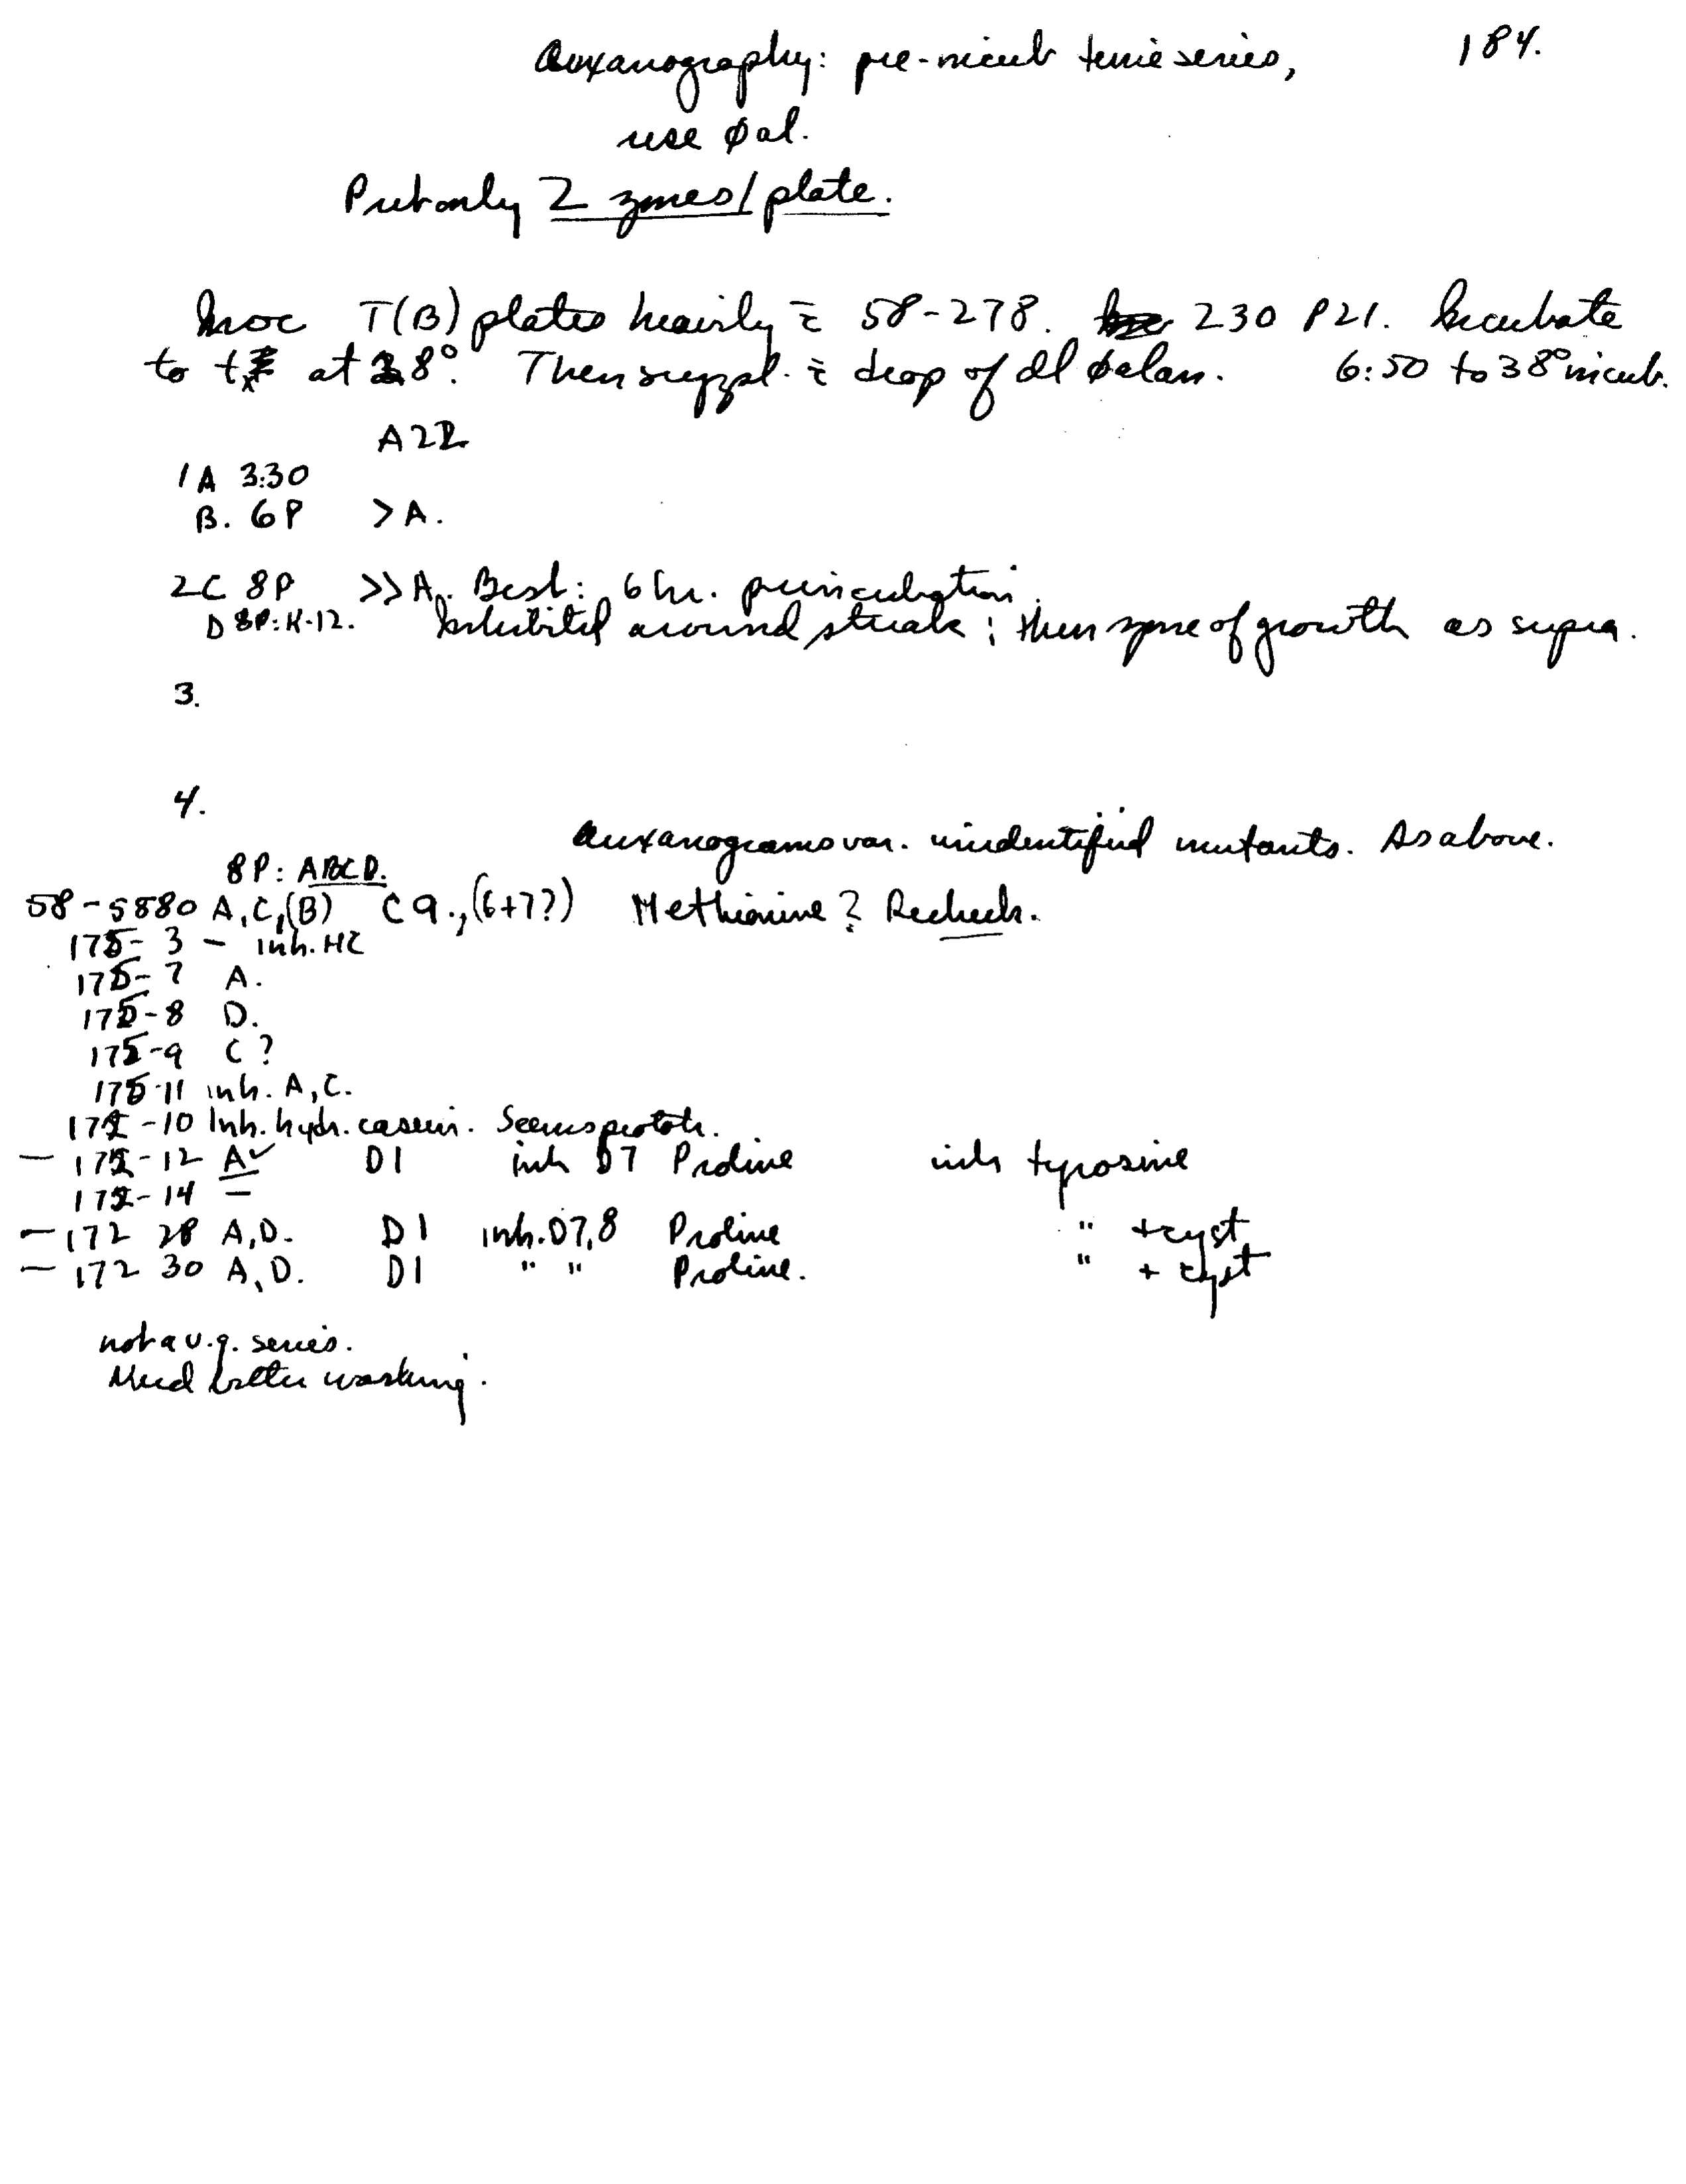 Auxanography: pre-incub time series, 184.
use φal.
Put only 2 zones/plate.
Inoc T(B) plates heavily c̄ 58-278. 230 P21. Incubate
to tx at 38°. Then suppl. c̄ drop of dl φalan. 6:50 to 38° incub.
A22
1A 3:30
B. 6P >A.
2C 8P >>A. Best: 6 hr. preincubation.
D 8P: K-12. Inhibited around streak; then zone of growth as supra.
3.
4.
Auxanograms var. unidentified mutants. As above.
8P: ABCD.
58-5880 A,C,(B) C9.,(6+7?) Methionine? Recheck.
175-3 – inh. HC
175-7 A.
175-8 D.
175-9 C?
175-11 inh. A,C.
172-10 Inh. hydr. casein. Seems prototr.
– 172-12 A✓ D1 inh D7 Proline inh tyrosine
172-14 –
– 172 28 A,D. D1 inh. D7,8 Proline " + cyst
– 172 30 A,D. D1 " " Proline. " + cyst
not a v.g. series.
Need better washing.